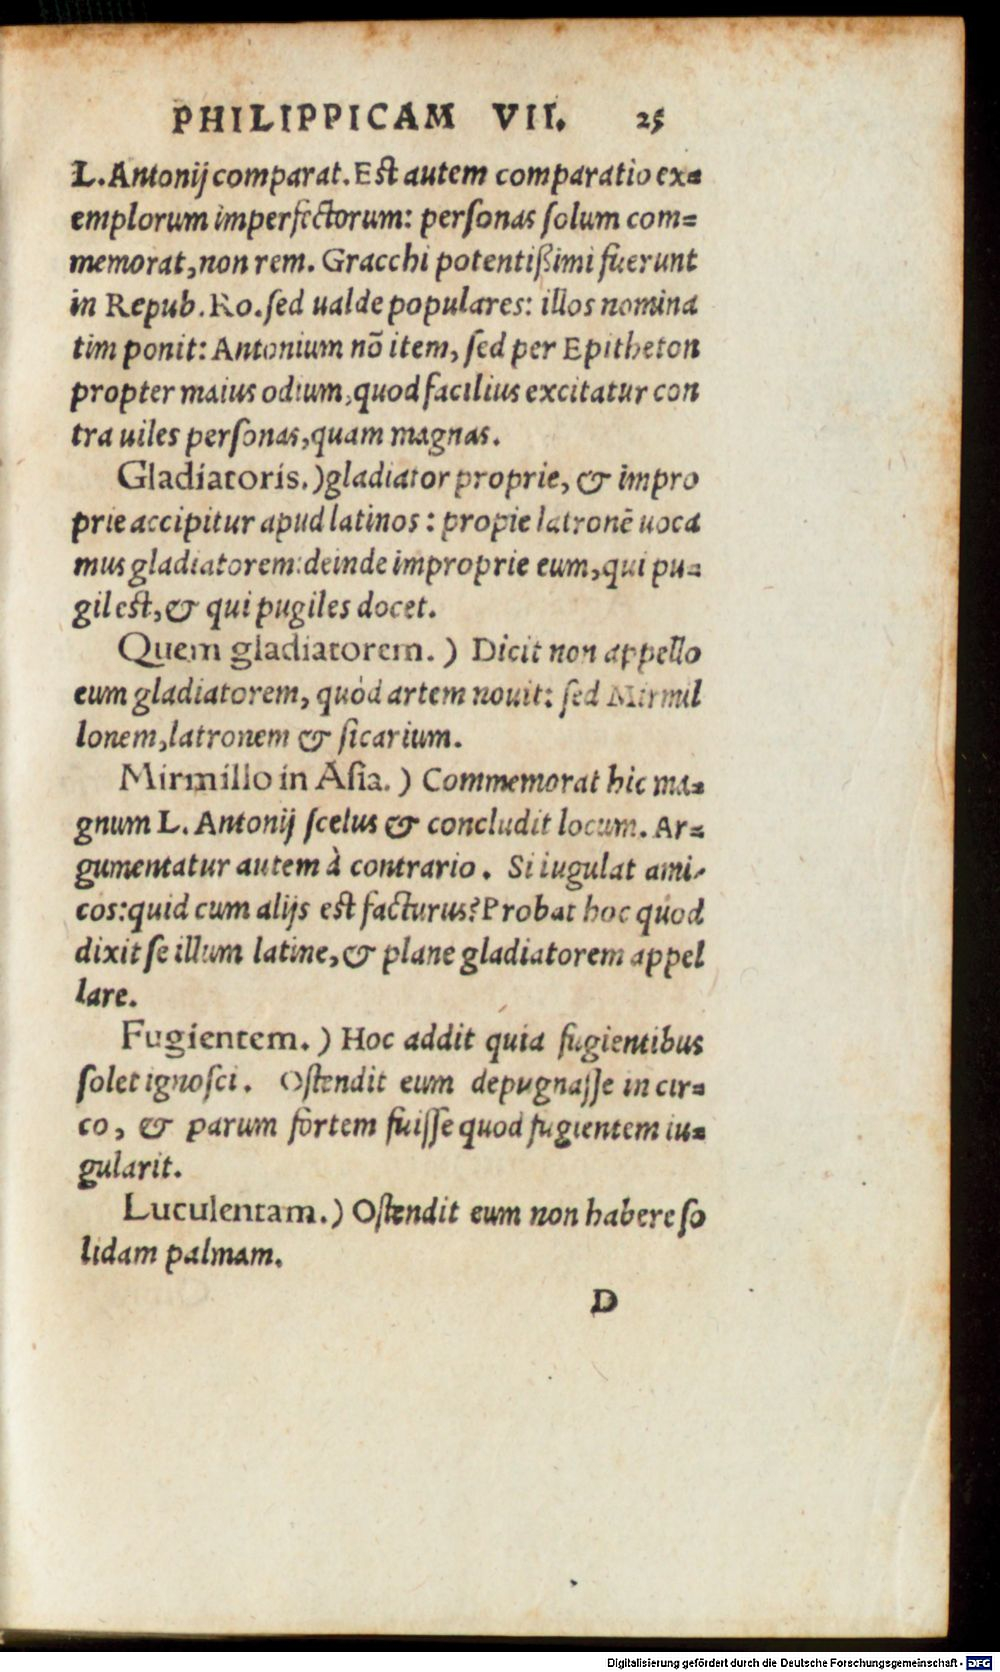 PHILIPPICAM VII. 25
L. Antonij comparat. Est autem comparatio ex=
emplorum imperfectorum: personas solum com=
memorat, non rem. Gracchi potentißimi fuerunt
in Repub. Ro. sed ualde populares: illos nomina
tim ponit: Antonium nõ item, sed per Epitheton
propter maius odium, quod facilius excitatur con
tra uiles personas, quam magnas.
Gladiatoris.) gladiator proprie, & impro
prie accipitur apud latinos: propie latronẽ uoca
mus gladiatorem: deinde improprie eum, qui pu=
gil est, & qui pugiles docet.
Quem gladiatorem.) Dicit non appello
eum gladiatorem, quòd artem nouit: sed Mirmil
lonem, latronem & sicarium.
Mirmillo in Asia.) Commemorat hic ma=
gnum L. Antonij scelus & concludit locum. Ar=
gumentatur autem à contrario. Si iugulat ami-
cos: quid cum alijs est facturus? Probat hoc quòd
dixit se illum latine, & plane gladiatorem appel
lare.
Fugientem.) Hoc addit quia fugientibus
solet ignosci. Ostendit eum depugnasse in cir-
co, & parum fortem fuisse quod fugientem iu=
gularit.
Luculentam.) Ostendit eum non habere so
lidam palmam.
D
Digitalisierung gefördert durch die Deutsche Forschungsgemeinschaft - DFG